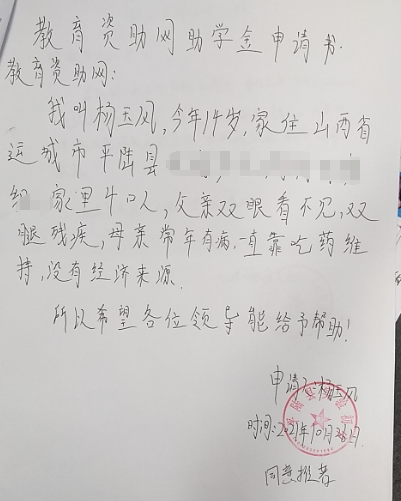 教育资助网助学金申请书.
教育资助网:
我叫杨玉凤,今年14岁,家住山西省
运城市平陆县
组 家里4口人,父亲双眼看不见,双
腿残疾,母亲常年有病,一直靠吃药维
持,没有经济来源.
所以希望各位领导能给予帮助!
申请人:杨玉凤
时间:2021年10月 日.
同意推荐